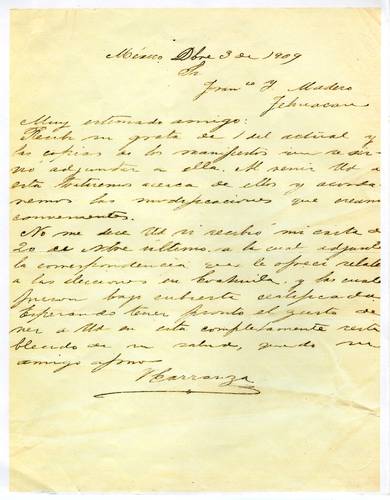 México Dbre 3 de 1909
Sr
Franco I. Madero
Tehuacan
Muy estimado amigo:
Recibí su grata de 1 del actual y
las copias de los manifiestos que se sir-
vió adjuntar a ella. Al venir Ud a
esta trataremos acerca de ellos y acorda-
remos las modificaciones que creamos
convenientes.
No me dice Ud si recibió mi carta de
20 de Nbre último, a la cual adjunté
la correspondencia que le ofrecí relativa
a las elecciones en Coahuila, y las cuales
fueron bajo cubierta certificada.
Esperando tener pronto el gusto de
ver a Ud en esta completamente resta
blecido de su salud, quedo su
amigo afmo
V Carranza